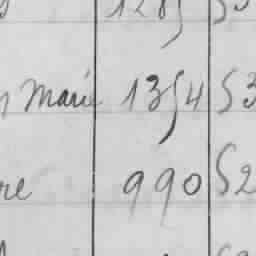 1285 53
Marie 1354 53
re 990 52